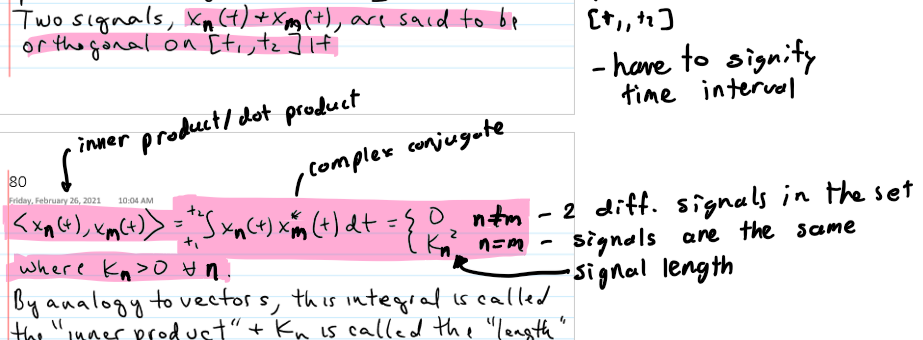 Two signals, xn(t) + xm(t), are said to be
orthogonal on [t1, t2] if
[t1, t2]
- have to signify
time interval
inner product / dot product
complex conjugate
80
Friday, February 26, 2021 10:04 AM
<xn(t), xm(t)> = t2 ∫ t1 xn(t) xm*(t) dt = { 0 n≠m - 2 diff. signals in the set
Kn² n=m - signals are the same
where Kn > 0 ∀ n.
signal length
By analogy to vectors, this integral is called
the "inner product" + Kn is called the "length"